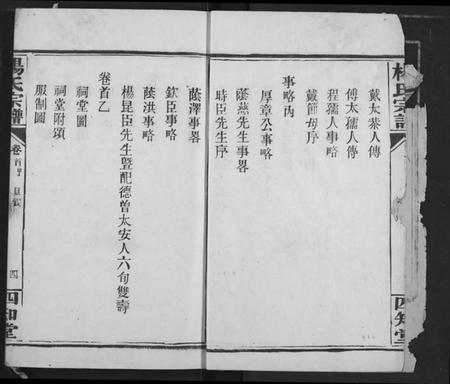 楊氏宗譜
四知堂
戴太恭人傳
傅太孺人傳
程孺人事略
戴節母序
事略丙
厚章公事略
蔭蕪先生事畧
時臣先生序
蔭澤事畧
欽臣事略
蔭洪事略
楊昆臣先生暨配德曾太安人六旬雙壽
卷首乙
祠堂圖
祠堂附頌
服制圖
楊氏宗譜
卷首甲 目錄
四
四知堂